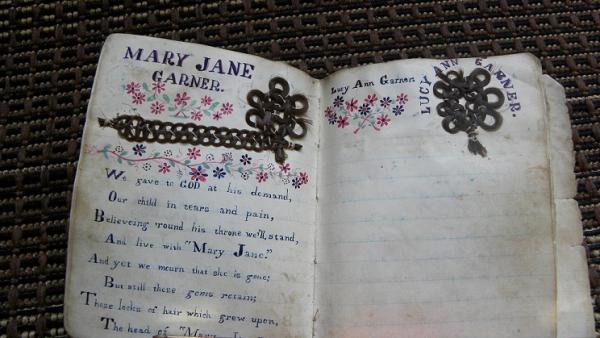 MARY JANE
GARNER.
We gave to GOD at his demand,
Our child in tears and pain,
Believeing 'round his throne we'll, stand,
And live with "Mary Jane."
And yet we mourn that she is gone;
But still these gems retain;
These locks of hair which grew upon,
The head of "Mary
Lucy Ann Garner.
LUCY ANN GARNER.